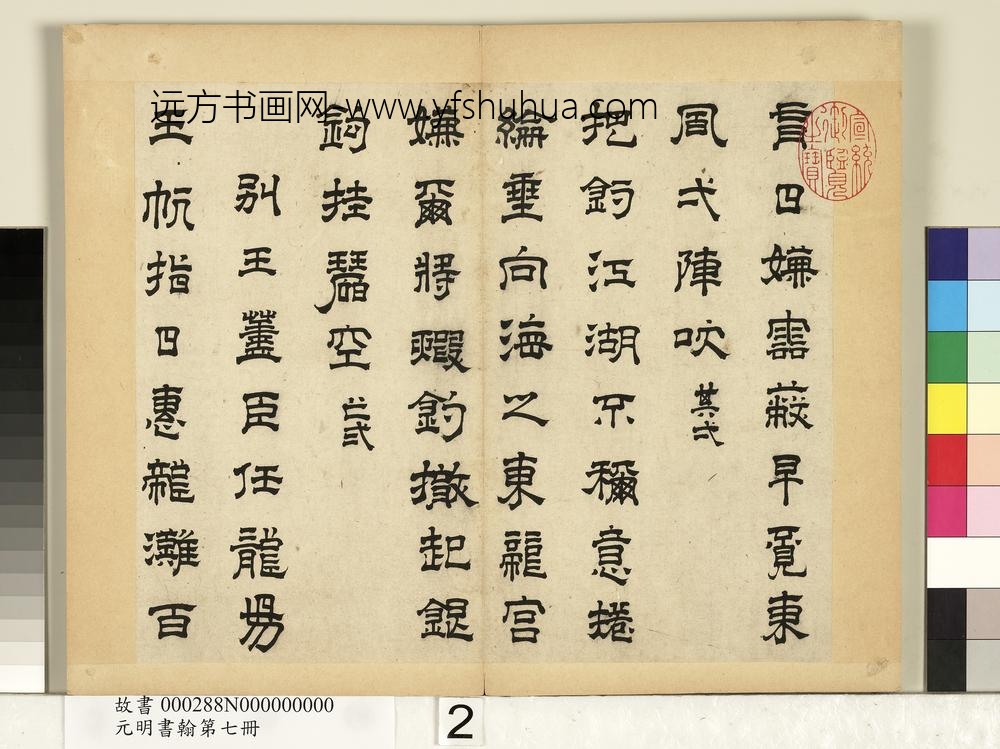 日嫌雲蔽早覓東
風弍陣吹 其弍
抱釣江湖不稱意捲
綸垂向海之東龍宮
嫌爾將蝦釣撤起銀
鉤挂碧空
別王藎臣任龍
帆指日惠龍灘百
宣統御覽之寶
远方书画网 www.yfshuhua.com
故書 000288N000000000
元明書翰第七冊
2